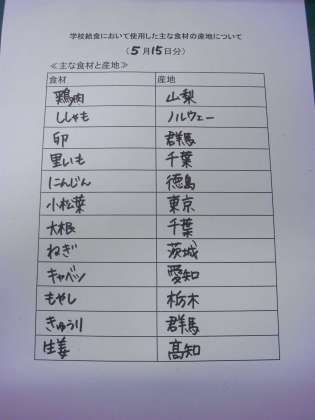 学校給食において使用した主な食材の産地について
(5月15日分)
≪主な食材と産地≫
食材 産地
鶏肉 山梨
ししゃも ノルウェー
卵 群馬
里いも 千葉
にんじん 徳島
小松菜 東京
大根 千葉
ねぎ 茨城
キャベツ 愛知
もやし 栃木
きゅうり 群馬
生姜 高知